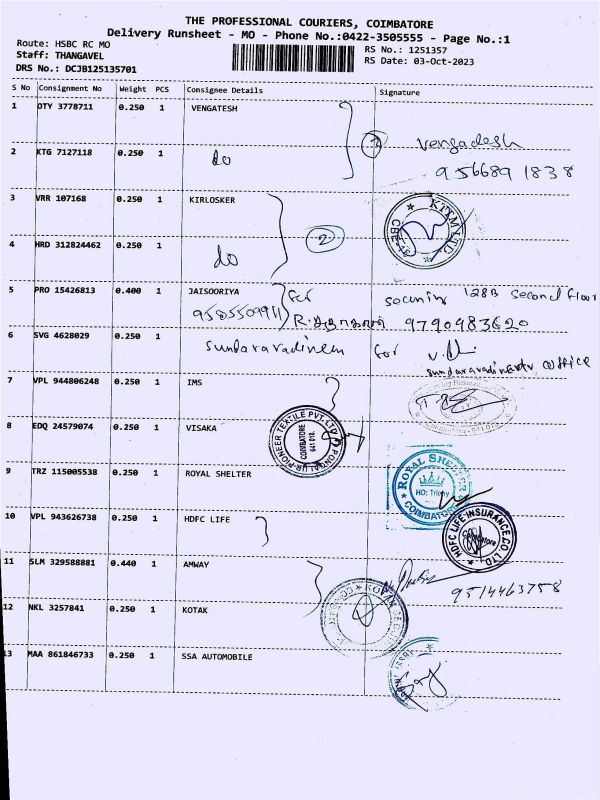 THE PROFESSIONAL COURIERS, COIMBATORE
Delivery Runsheet - MO - Phone No.:0422-3505555 - Page No.:1
Route: HSBC RC MO
RS No.: 1251357
Staff: THANGAVEL
RS Date: 03-Oct-2023
DRS No.: DCJB125135701
S No Consignment No Weight PCS Consignee Details Signature
1 OTY 3778711 0.250 1 VENGATESH
Vengadesh
2 KTG 7127118 0.250 1 do 2
956689 1838
3 VRR 107168 0.250 1 KIRLOSKER
4 HRD 312824462 0.250 1 do 2
5 PRO 15426813 0.400 1 JAISOORIYA for 128B Second floor
9585509911 9790983620
6 SVG 4628029 0.250 1 for
office
7 VPL 944806248 0.250 1 IMS
UR-PIONEER TEXTILE PVT.LTD
COIMBATORE
8 EDQ 24579074 0.250 1 VISAKA
9 TRZ 115005538 0.250 1 ROYAL SHELTER
ROYAL SHELTER
HO: Trichy
COIMBATORE
10 VPL 943626738 0.250 1 HDFC LIFE
HDFC LIFE INSURANCE CO LTD
11 SLM 329588881 0.440 1 AMWAY
9514463758
12 NKL 3257841 0.250 1 KOTAK
13 MAA 861846733 0.250 1 SSA AUTOMOBILE